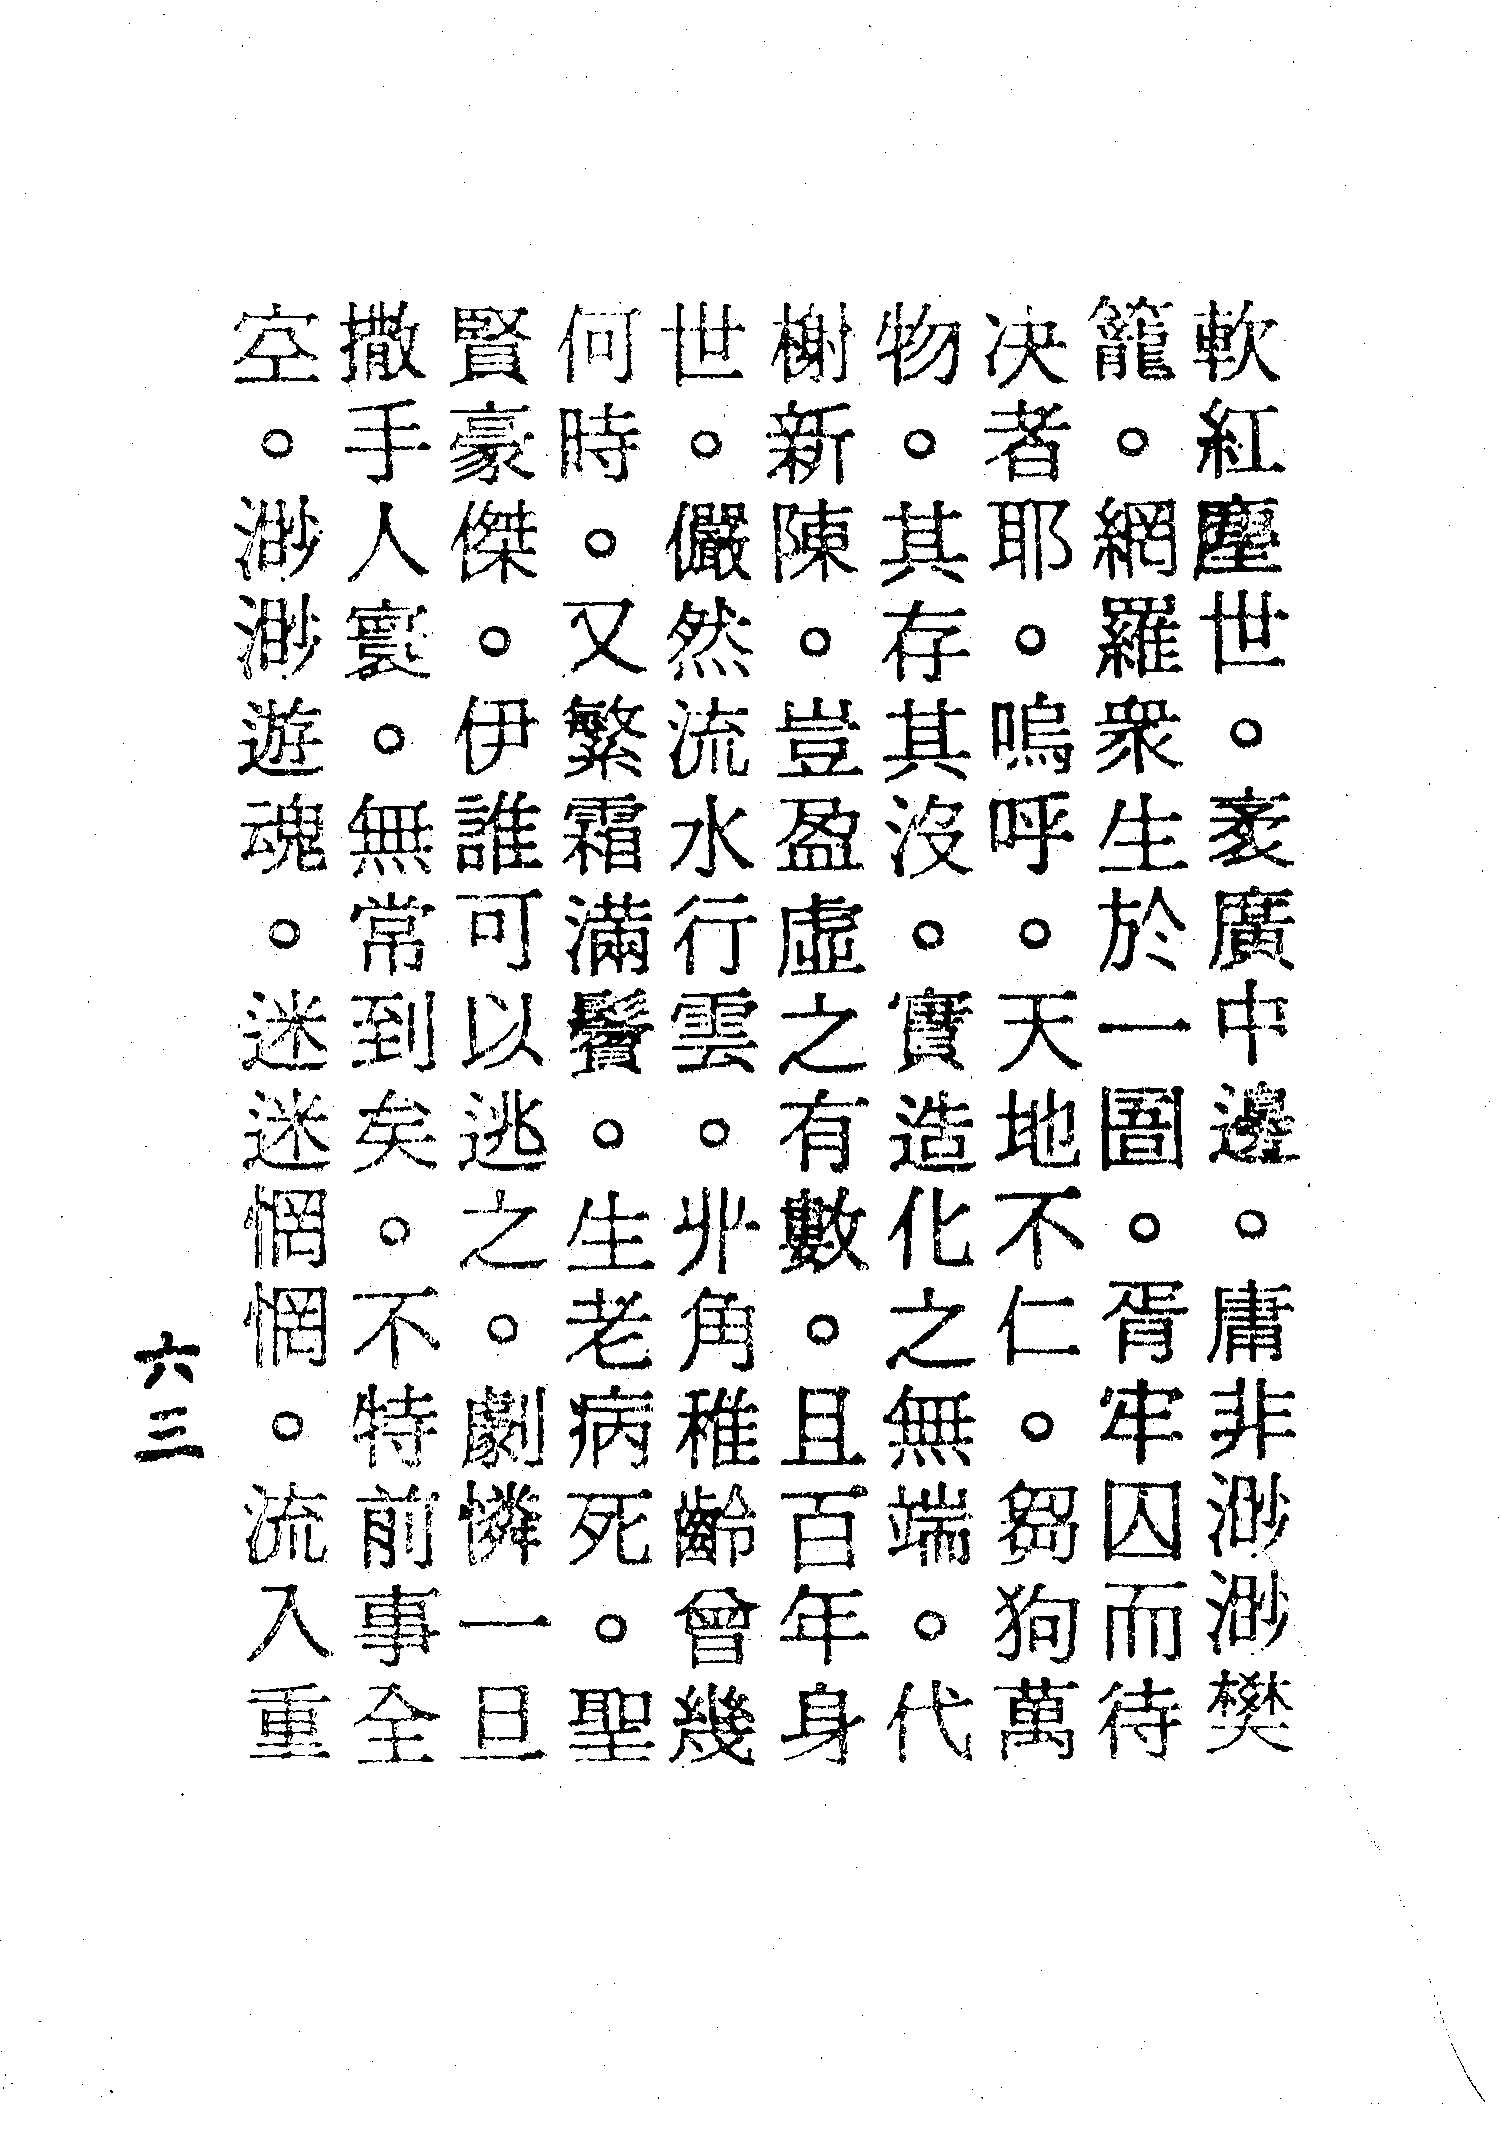 軟紅塵世。袤廣中邊。庸非渺渺樊
籠。網羅衆生於一圄。胥牢囚而待
决者耶。嗚呼。天地不仁。芻狗萬
物。其存其沒。實造化之無端。代
榭新陳。豈盈虛之有數。且百年身
世。儼然流水行雲。丱角稚齡曾幾
何時。又繁霜滿鬢。生老病死。聖
賢豪傑。伊誰可以逃之。劇憐一旦
撒手人寰。無常到矣。不特前事全
空。渺渺遊魂。迷迷惘惘。流入重
六三